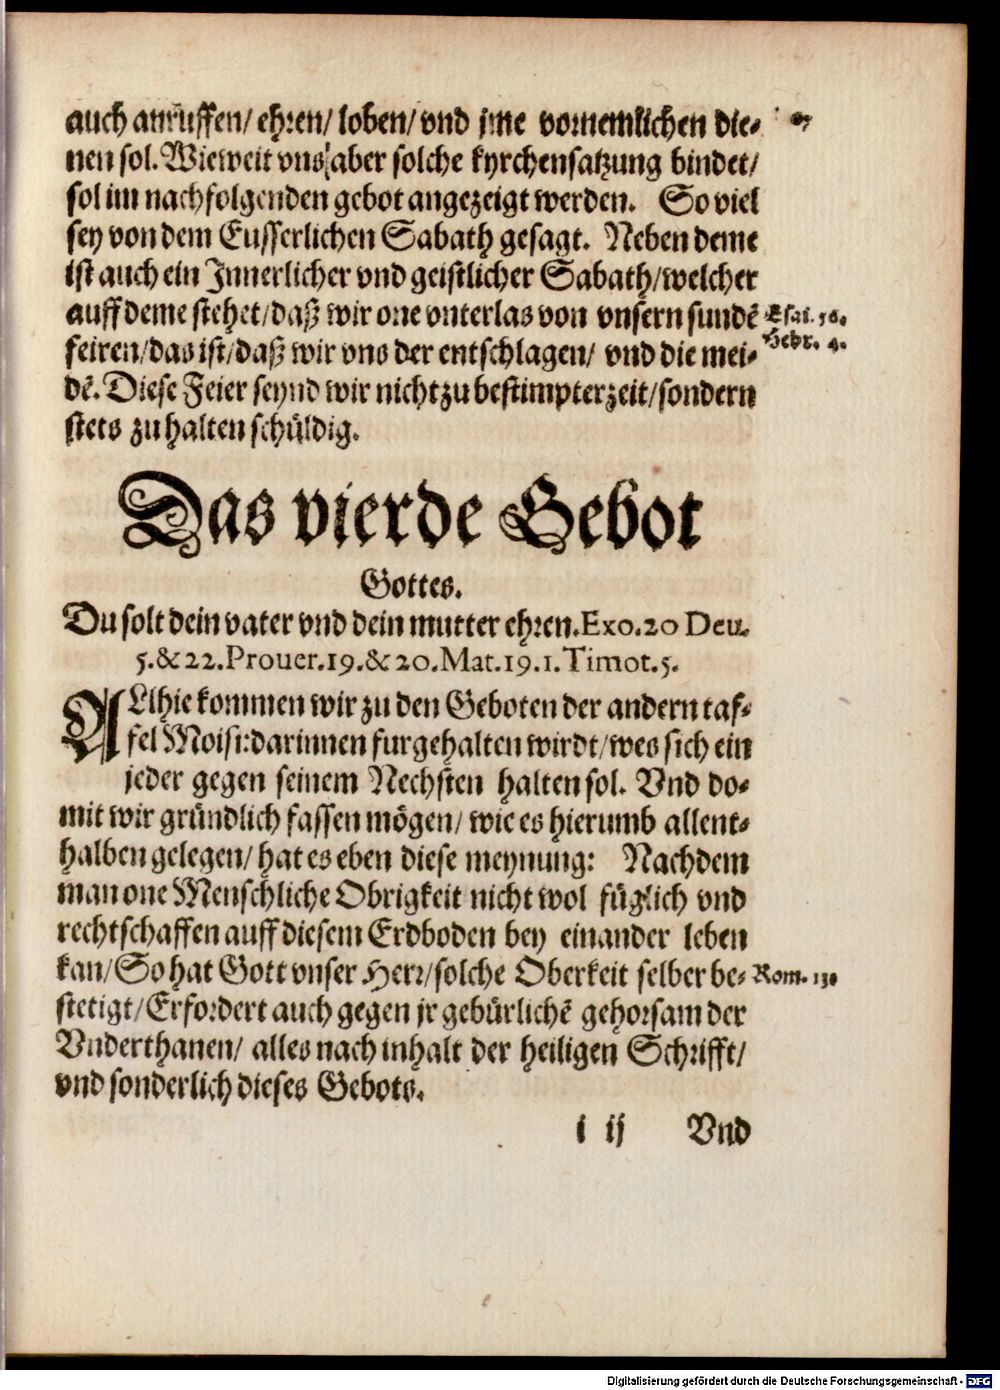 auch anruffen/ ehren/ loben/ vnd jme vornemlichen die-
nen sol. Wieweit vns aber solche kyrchensatzung bindet/
sol im nachfolgenden gebot angezeigt werden. So viel
sey von dem Eusserlichen Sabath gesagt. Neben deme
ist auch ein Innerlicher vnd geistlicher Sabath/welcher
auff deme stehet/daß wir one vnterlas von vnsern sundẽ
Esai. 56.
feiren/das ist/daß wir vns der entschlagen/ vnd die mei-
Hebr. 4.
dẽ. Diese Feier seynd wir nicht zu bestimpter zeit/sondern
stets zu halten schüldig.
Das vierde Gebot
Gottes.
Du solt dein vater vnd dein mutter ehren.Exo.20 Deu.
5.&22.Prouer.19.&20.Mat.19.1.Timot.5.
ALlhie kommen wir zu den Geboten der andern taf-
fel Moisi:darinnen furgehalten wirdt/wes sich ein
jeder gegen seinem Nechsten halten sol. Vnd do-
mit wir gründlich fassen mögen/ wie es hierumb allent-
halben gelegen/ hat es eben diese meynung: Nachdem
man one Menschliche Obrigkeit nicht wol füglich vnd
rechtschaffen auff diesem Erdboden bey einander leben
kan/So hat Gott vnser Herr/solche Oberkeit selber be-
Rom. 13.
stetigt/Erfordert auch gegen jr gebürlichẽ gehorsam der
Vnderthanen/ alles nach inhalt der heiligen Schrifft/
vnd sonderlich dieses Gebots.
i ij Vnd
Digitalisierung gefördert durch die Deutsche Forschungsgemeinschaft - DFG